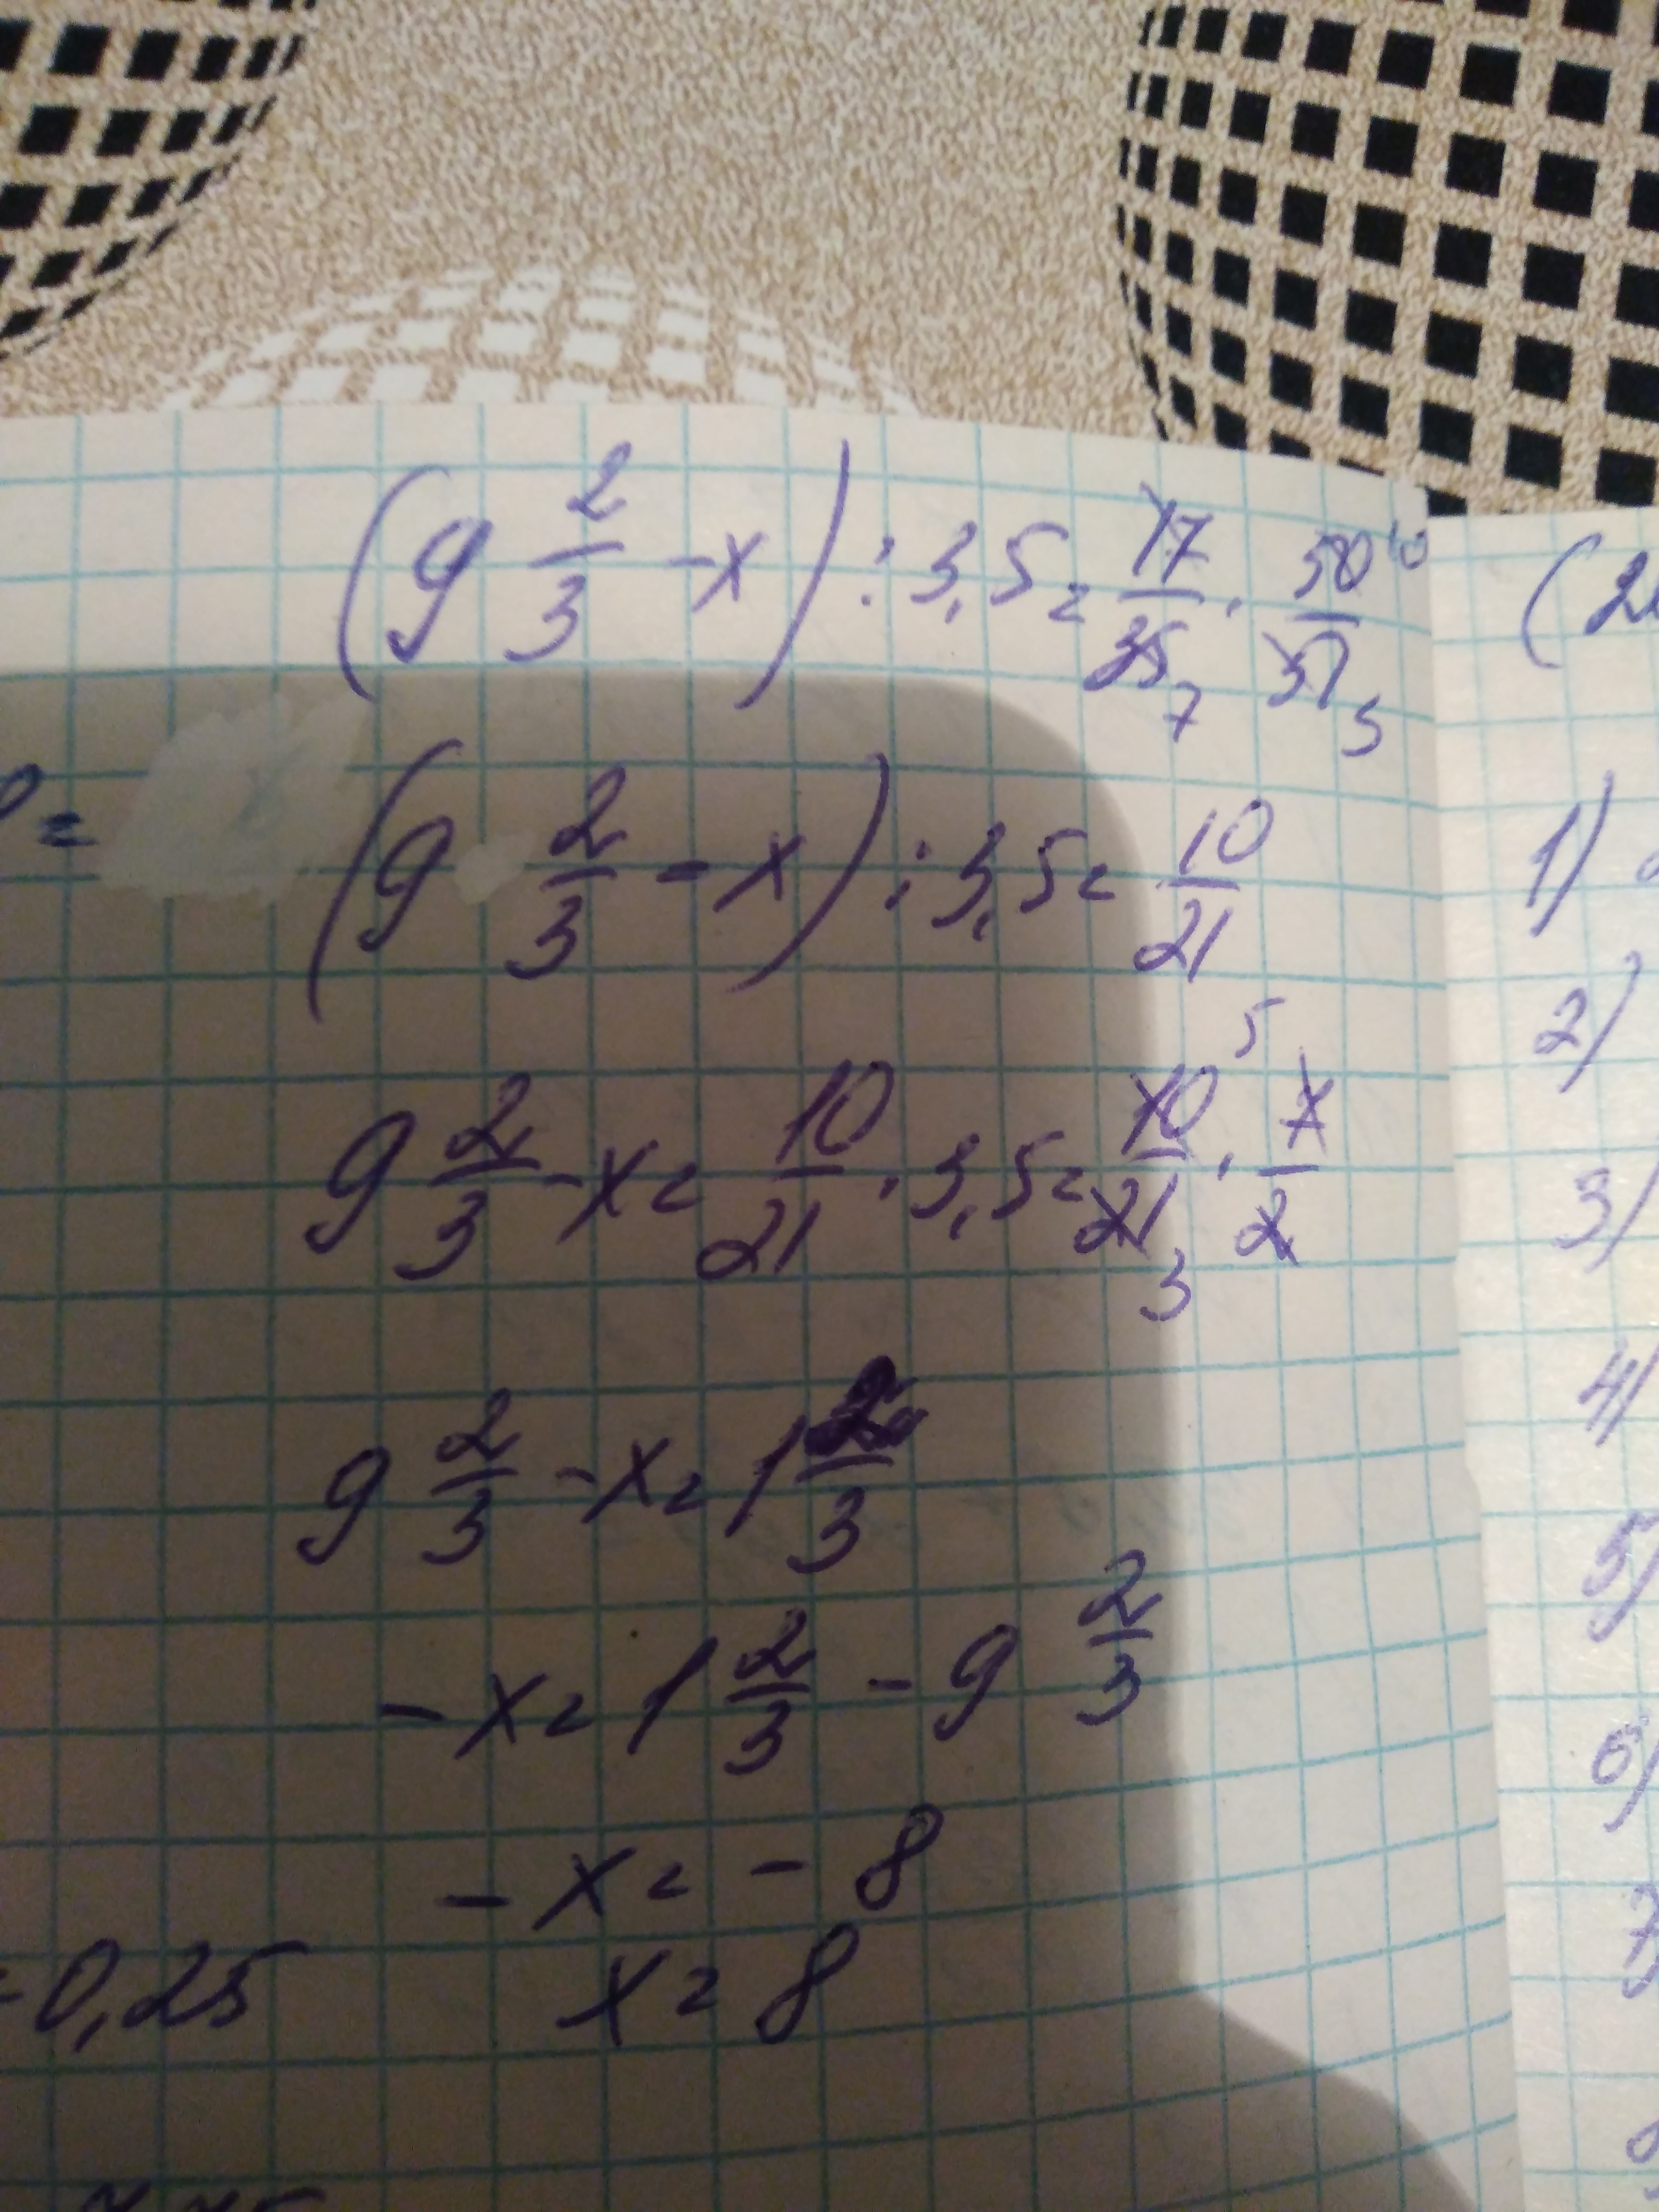 (9 2/3 - x) : 3,5 = 17/35 7 · 50 10/51 3
(9 2/3 - x) : 3,5 = 10/21
9 2/3 - x = 10/21 · 3,5 = 10 5/21 3 · 7/2
9 2/3 - x = 1 2/3
- x = 1 2/3 - 9 2/3
- x = - 8
x = 8
=
= 0,25
(2
1)
2)
3)
4)
5)
6)
7)